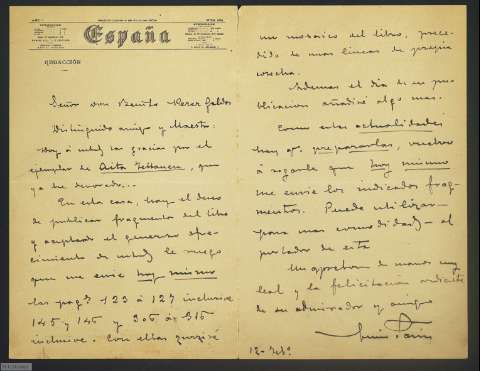 España
REDACCIÓN
Señor Don Benito Perez Galdós
Distinguido amigo y Maestro:
Doy á usted las gracias por el
ejemplar de Aita Tettauen, que
ya he devorado...
En esta casa, hay el deseo
de publicar fragmentos del libro
y aceptando el generoso ofre-
cimiento de usted le ruego
que me envie hoy mismo
las pags 123 á 127 inclusive
145 y 146 y 306 á 316
inclusive. Con ellas
un mosaico del libro, prece-
dido de unas lineas de propia
cosecha.
Ademas el dia de su pu-
blicacion añadiré algo mas.
Como estas actualidades
hay q. prepararlas, vuelvo
á rogarle que hoy mismo
me envie los indicados frag-
mentos. Puede utilizar—
para mas comodidad— al
portador de esta
Un apreton de manos muy
leal y la felicitación
de su admirador y amigo
12-